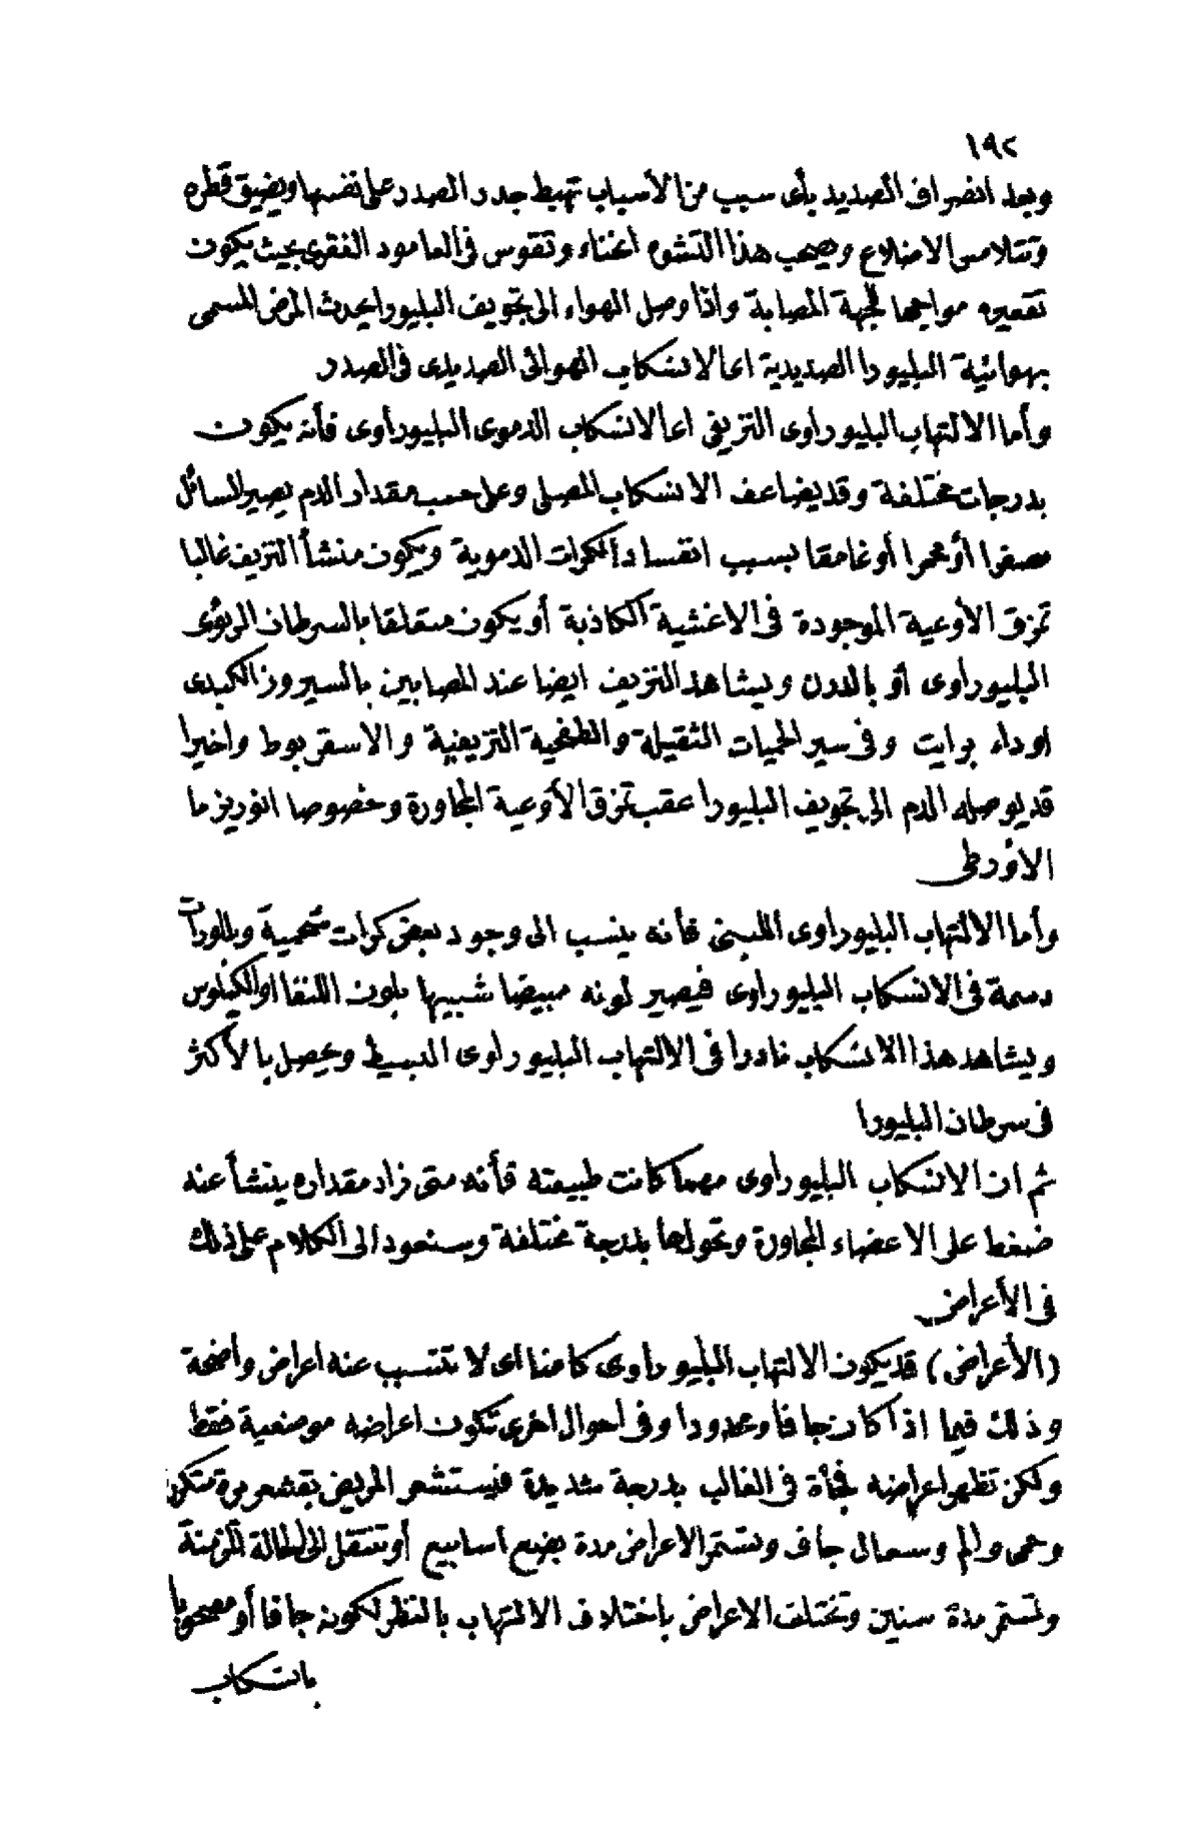 ١٩٢
وبعد انصراف الصديد بأى سبب من الأسباب تهبط جدر الصدر على نفسها ويضيق قطره
وتتلامس الاضلاع ويصحب هذا التشوه انحناء وتقوس فى العامود الفقرى بحيث يكون
تقعيره مواجها للجهة المصابة واذا وصل الهواء الى تجويف البليورا يحدث المرض المسمى
بهوائية البليورا الصديدية اى الانسكاب الهوائى الصديدى فى الصدر
وأما الالتهاب البليوراوى النزيفى اى الانسكاب الدموى البليوراوى فأنه يكون
بدرجات مختلفة وقد يضاعف الانسكاب المصلى وعلى حسب مقدار الدم يصير السائل
مصفرا أو محمرا أو غامقا بسبب انفساد الكرات الدموية ويكون منشأ النزيف غالبا
تمزق الأوعية الموجودة فى الاغشية الكاذبة أو يكون متعلقا بالسرطان الرئوى
البليوراوى أو بالدرن ويشاهد النزيف ايضا عند المصابين بالسيروز الكبدى
اوداء برايت وفى سير الحميات الثقيلة والطفحية النزيفية والاسقربوط واخيرا
قد يوصله الدم الى تجويف البليورا عقب تمزق الأوعية المجاورة وخصوصا انوريزما
الأورطى
وأما الالتهاب البليوراوى اللبنى فأنه ينسب الى وجود بعض كرات شحمية وبللورات
دسمة فى الانسكاب البليوراوى فيصير لونه مبيضا شبيها بلون اللنفا اوالكيلوس
ويشاهد هذا الانسكاب نادرا فى الالتهاب البليوراوى البسيط ويحصل بالأكثر
فى سرطان البليورا
ثم ان الانسكاب البليوراوى مهما كانت طبيعته فأنه متى زاد مقداره ينشأ عنه
ضغط على الاعضاء المجاورة وتحولها بدرجة مختلفة وسنعود الى الكلام على ذلك
فى الأعراض
(الأعراض) قد يكون الالتهاب البليوراوى كامنا اى لا تتسبب عنه اعراض واضحة
وذلك فيما اذا كان جافا ومحدودا وفى احوال اخرى تكون اعراضه موضعية فقط
ولكن تظهر اعراضه فجأة فى الغالب بدرجة شديدة فيستشعر المريض بقشعريرة متكررة
وحمى والم وسعال جاف وتستمر الاعراض مدة بضع اسابيع أو تنتقل الى الحالة المزمنة
وتستمر مدة سنين وتختلف الاعراض باختلاف الالتهاب بالنظر لكونه جافا أو مصحوبا
بانسكاب